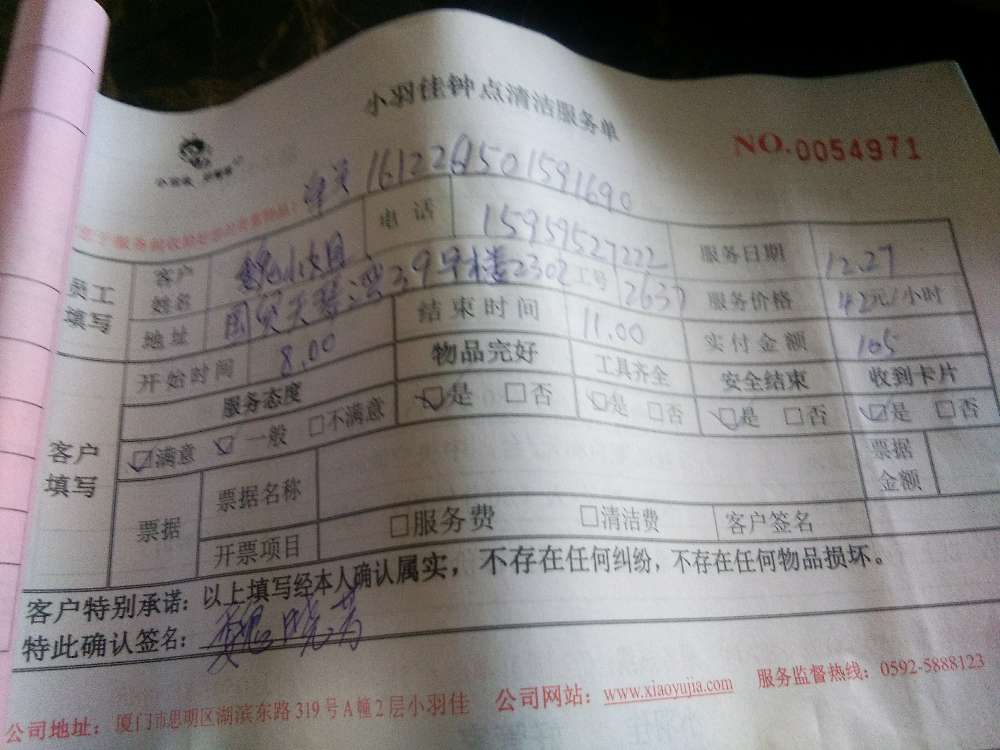 小羽佳钟点清洁服务单
NO.0054971
1612269501591690
员工填写 客户姓名 魏小姐 电话 15959527222 服务日期 12.27
地址 国贸天琴湾39号楼2302 工号 2637 服务价格 42元/小时
开始时间 8.00 结束时间 11.00 实付金额 105
客户填写 服务态度 物品完好 工具齐全 安全结束 收到卡片
满意 一般 不满意 是 否 是 否 是 否 是 否
票据 票据名称 票据金额
开票项目 服务费 清洁费 客户签名
客户特别承诺：以上填写经本人确认属实，不存在任何纠纷，不存在任何物品损坏。
特此确认签名：魏晓菁
公司地址：厦门市思明区湖滨东路319号A幢2层小羽佳 公司网站：www.xiaoyujia.com 服务监督热线：0592-5888123